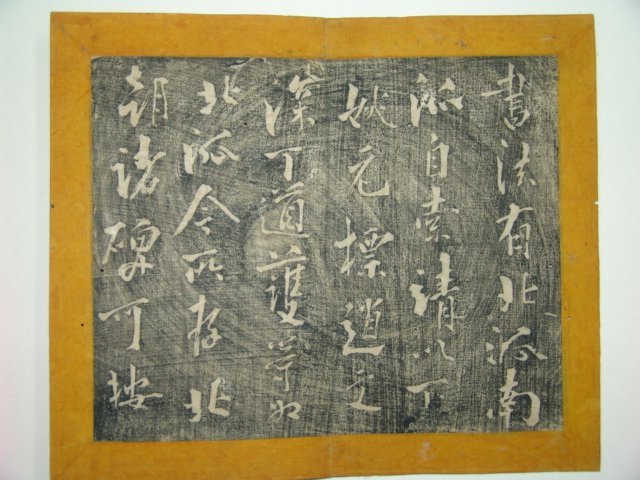 書法有北派南
派自索靖以下
姚元標趙文
深丁道護等為
北派今所存北
朝諸碑可按